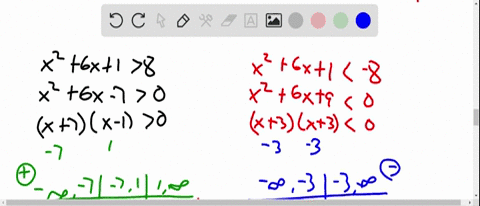 x² + 6x + 1 > 8
x² + 6x - 7 > 0
(x + 7)(x - 1) > 0
-7 1
+
-∞, -7 | -7, 1 | 1, ∞
x² + 6x + 1 < -8
x² + 6x + 9 < 0
(x + 3)(x + 3) < 0
-3 -3
-
-∞, -3 | -3, ∞
A